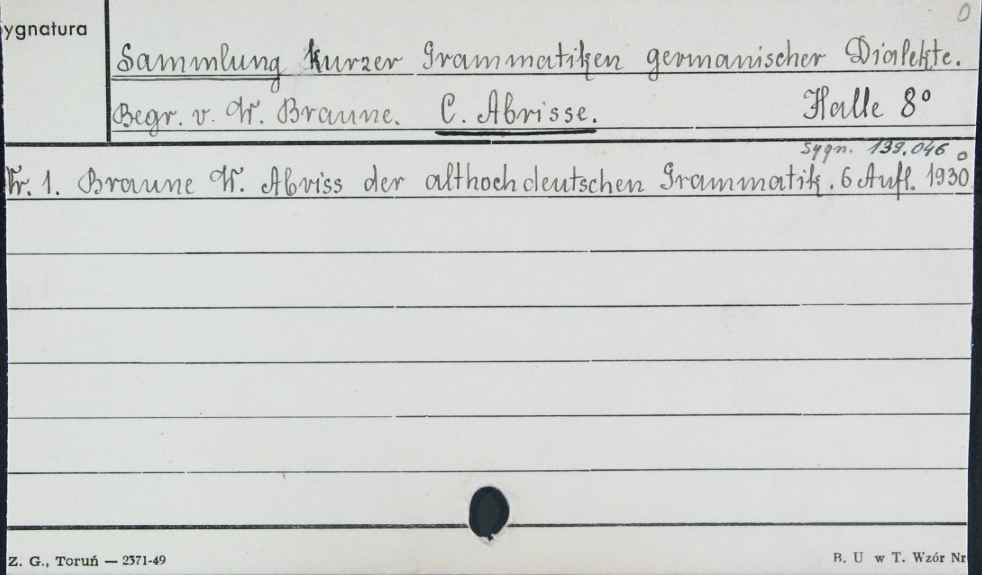 ygnatura
0
Sammlung kurzer Grammatiken germanischer Dialekte.
Begr. v. W. Braune. C. Abrisse. Halle 8°
Sygn. 139.046
Nr. 1. Braune W. Abriss der althochdeutschen Grammatik. 6 Aufl. 1930
Z. G., Toruń — 2371-49
B. U w T. Wzór Nr